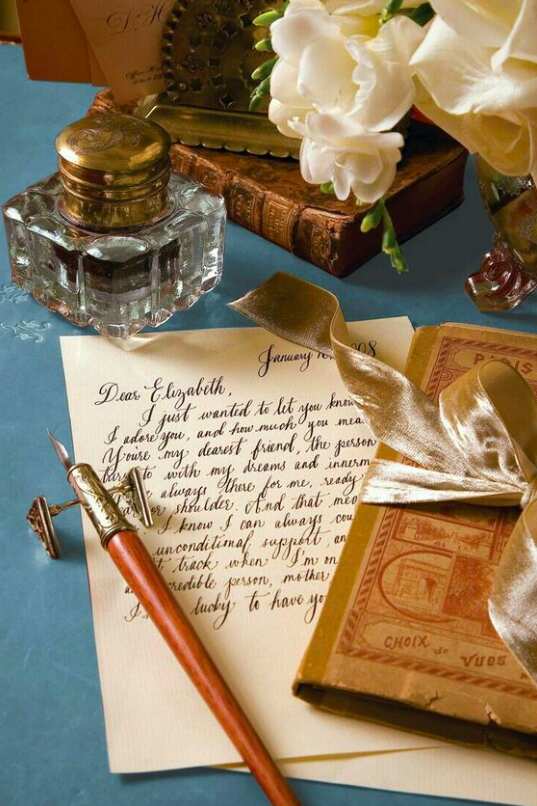 D H
January 10, 2008
Dear Elizabeth,
I just wanted to let you know
I adore you, and how much you mea
You're my dearest friend, the person
to with my dreams and innerm
always there for me, ready
or shoulder. And that mea
I know I can always cou
unconditional support an
track when I'm on
credible person, mother
lucky to have yo
PARIS
CHOIX de VUES